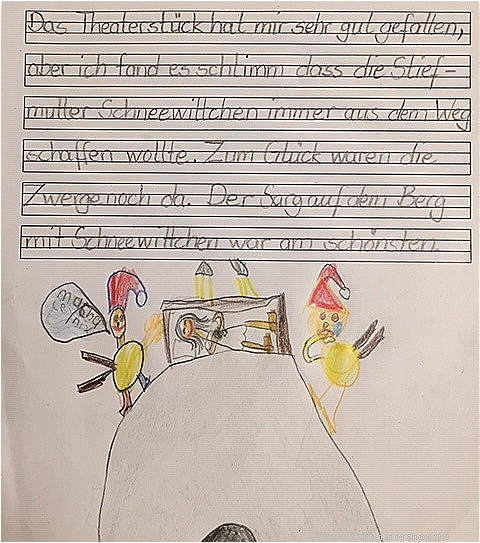 Das Theaterstück hat mir sehr gut gefallen,
aber ich fand es schlimm dass die Stief-
mutter Schneewittchen immer aus dem Weg
schaffen wollte. Zum Glück waren die
Zwerge noch da. Der Sarg auf dem Berg
mit Schneewittchen war am schönsten.